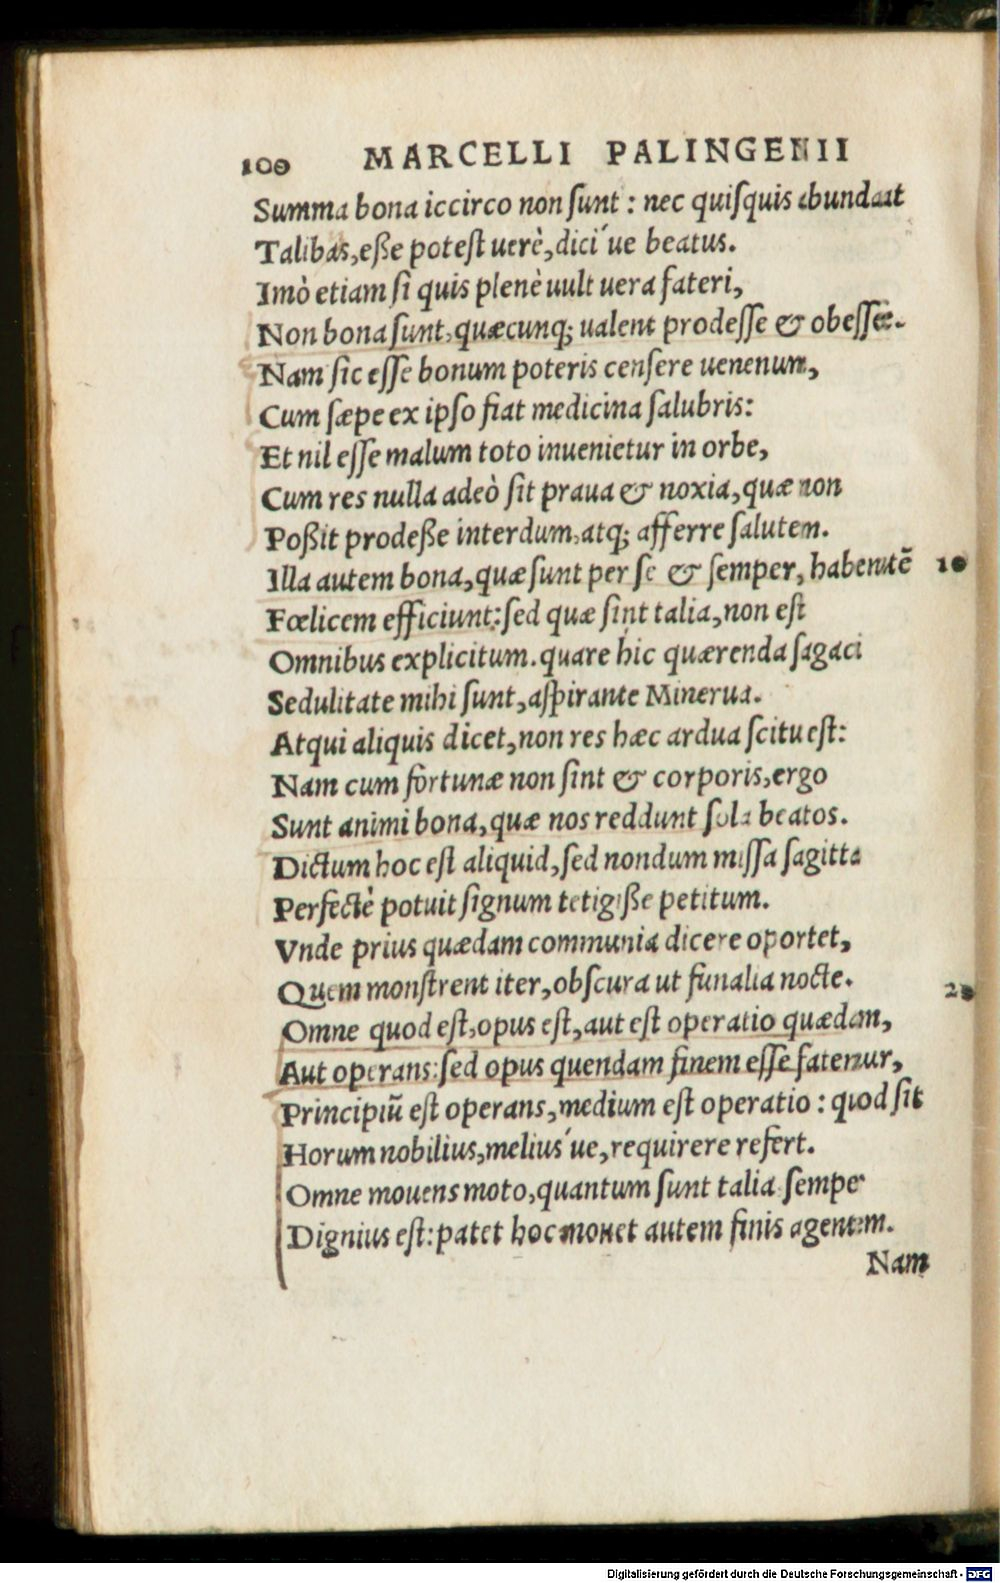 100 MARCELLI PALINGENII
Summa bona iccirco non ſunt : nec quiſquis abundat
Talibus, eße poteſt uerè, dici´ue beatus.
Imò etiam ſi quis plenè uult uera fateri,
Non bona ſunt, quæcunq; ualent prodeſſe & obeſſe.
Nam ſic eſſe bonum poteris cenſere uenenum,
Cum ſæpe ex ipſo fiat medicina ſalubris:
Et nil eſſe malum toto inuenietur in orbe,
Cum res nulla adeò ſit praua & noxia, quæ non
Poßit prodeße interdum, atq; afferre ſalutem.
Illa autem bona, quæ ſunt per ſe & ſemper, habentẽ 10
Fœlicem efficiunt: ſed quæ ſint talia, non eſt
Omnibus explicitum. quare hic quærenda ſagaci
Sedulitate mihi ſunt, aſpirante Minerua.
Atqui aliquis dicet, non res hæc ardua ſcitu eſt:
Nam cum fortunæ non ſint & corporis, ergo
Sunt animi bona, quæ nos reddunt ſola beatos.
Dictum hoc eſt aliquid, ſed nondum miſſa ſagitta
Perfectè potuit ſignum tetigiße petitum.
Vnde prius quædam communia dicere oportet,
Quem monſtrent iter, obſcura ut funalia nocte. 20
Omne quod eſt, opus eſt, aut eſt operatio quædam,
Aut operans: ſed opus quendam finem eſſe fatemur,
Principiũ eſt operans, medium eſt operatio : quod ſit
Horum nobilius, melius´ue, requirere refert.
Omne mouens moto, quantum ſunt talia ſemper
Dignius eſt: patet hoc mouet autem finis agentem.
Nam
Digitalisierung gefördert durch die Deutsche Forschungsgemeinschaft - DFG